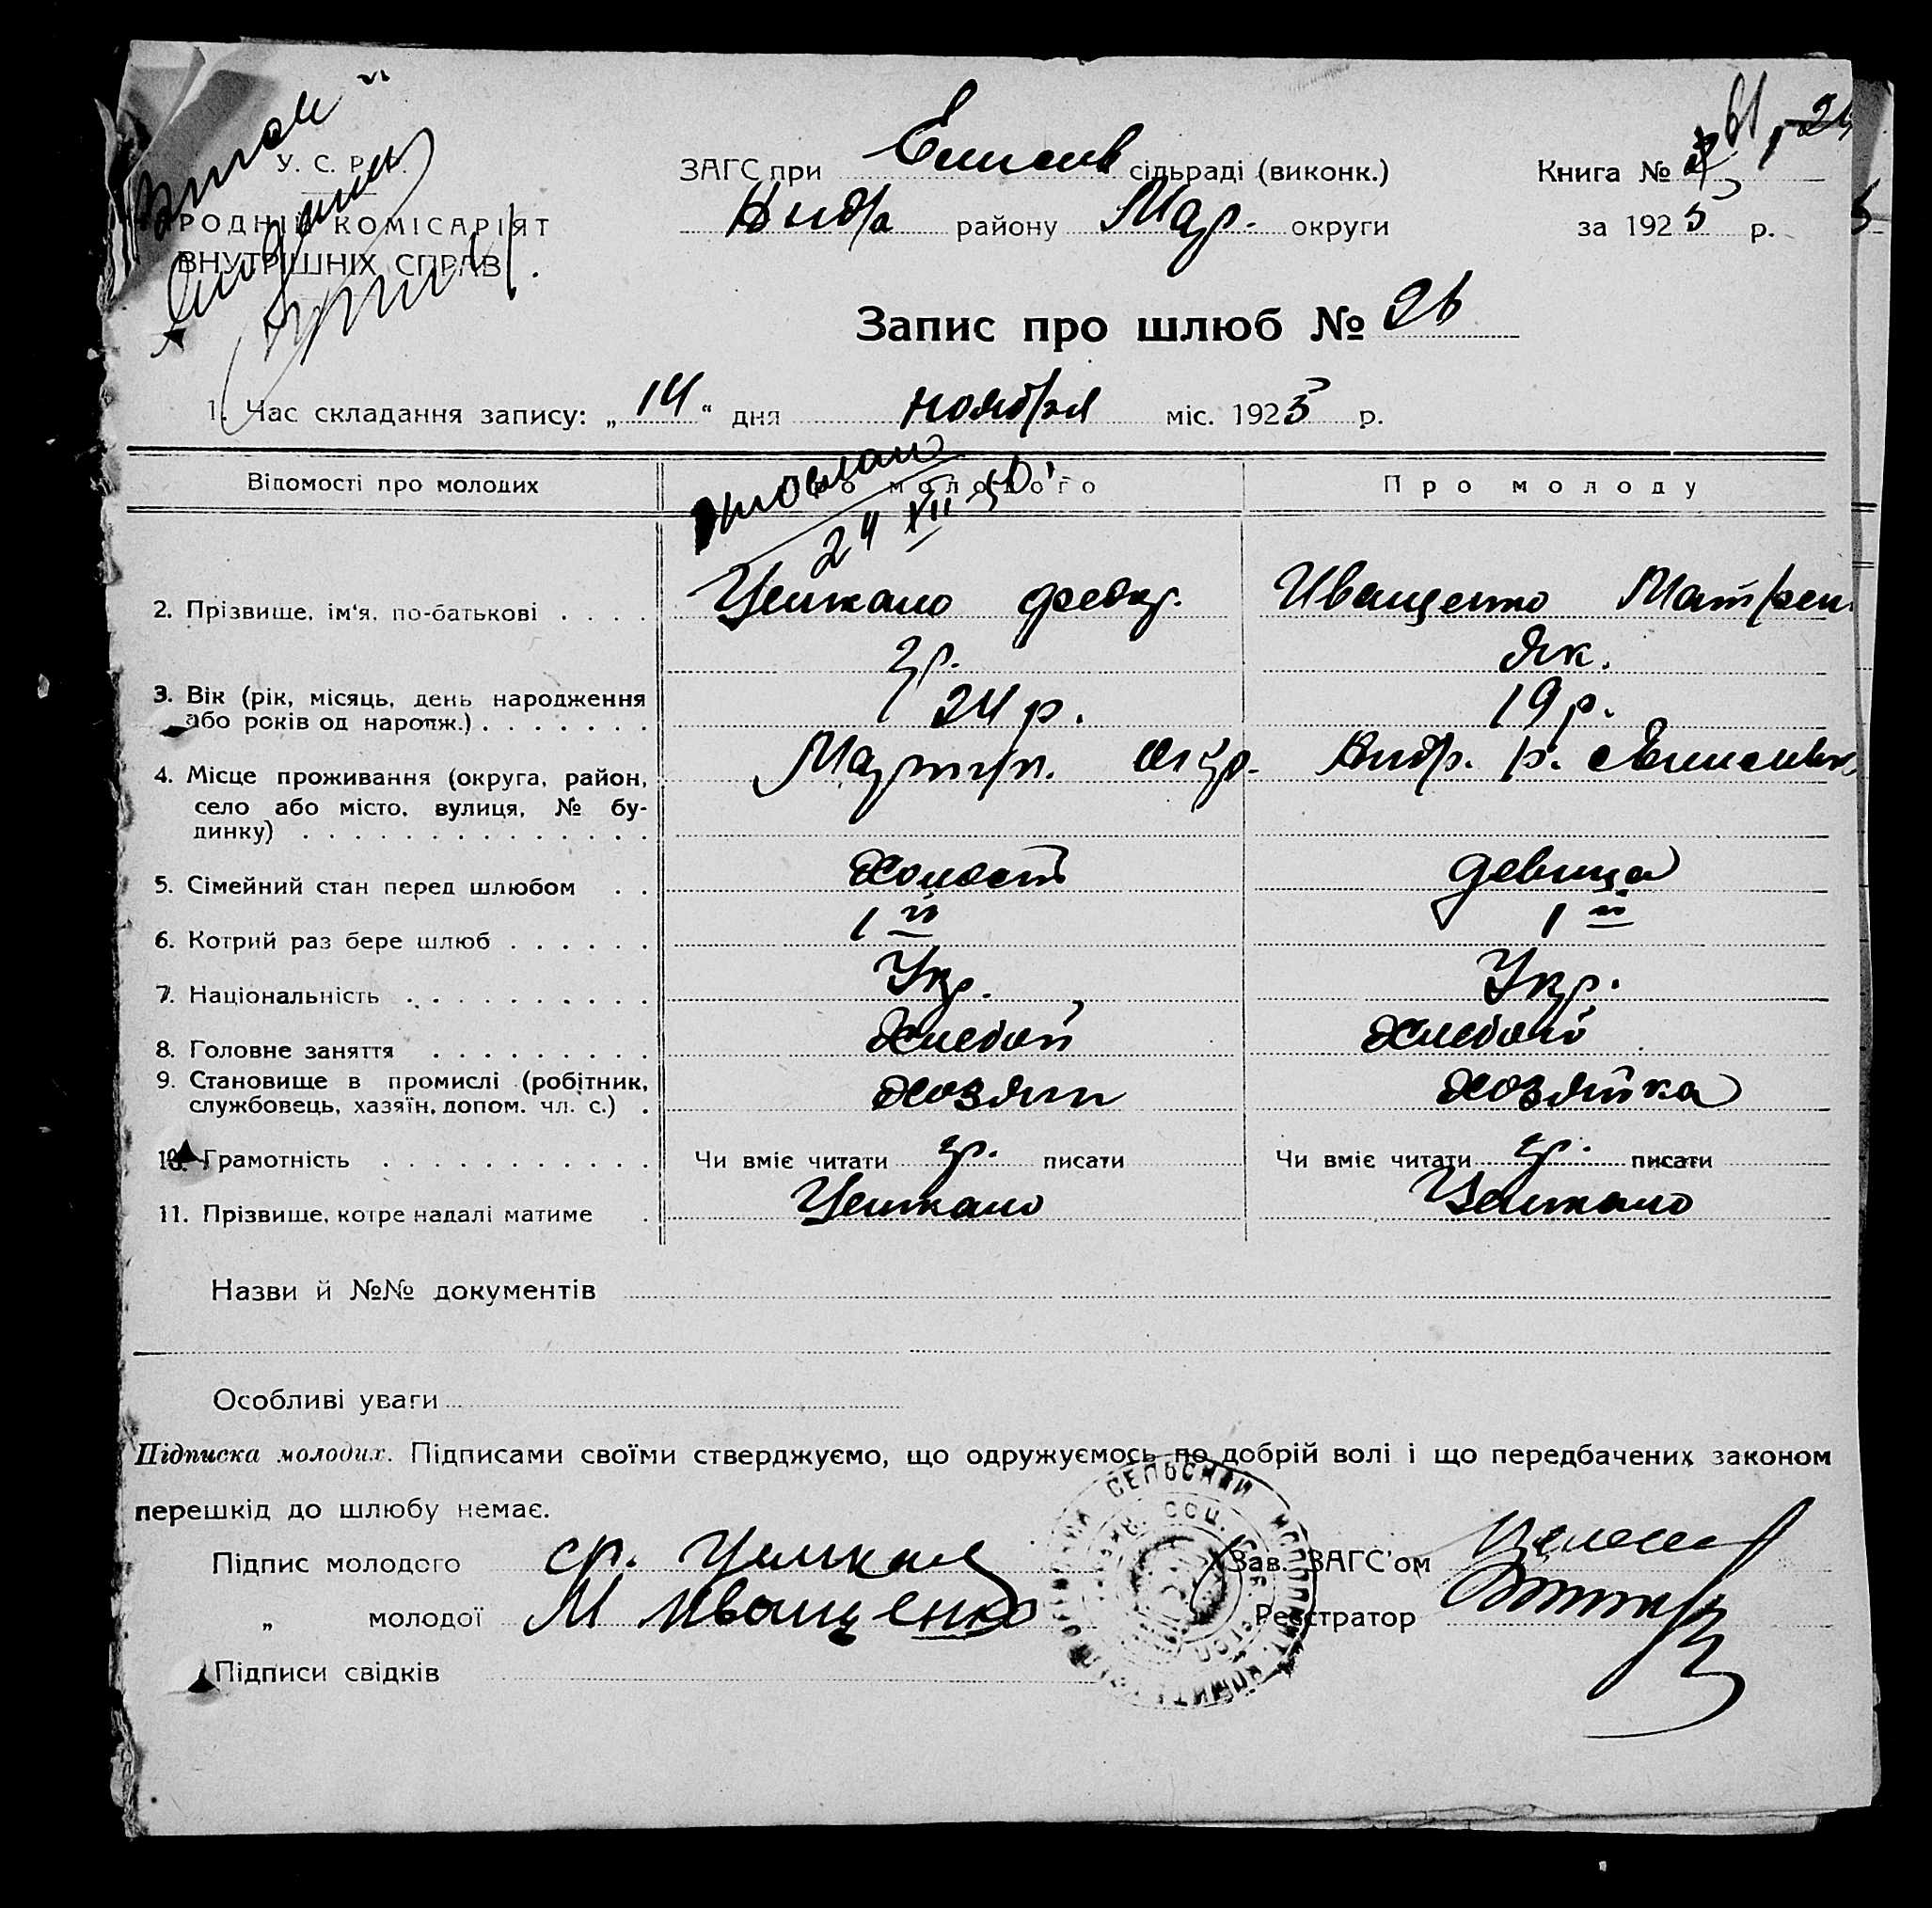 У. С. Р. Р.
РОДНІЙ КОМІСАРІЯТ
ВНУТРІШНІХ СПРАВ
ЗАГС при сільраді (виконк.)
району Мар. округи
Книга №
за 1925 р.
Запис про шлюб № 26
1. Час складання запису: „14“ дня ноября міс. 1925 р.
Відомості про молодих
Про молодого
Про молоду
24 XII
2. Прізвище, ім'я, по-батькові . . . .
Цейкало Федор.
Иващенко Матрен.
гр.
Як.
3. Вік (рік, місяць, день народження
або років од народж.) . . . . . . .
24 р.
19 р.
4. Місце проживання (округа, район,
село або місто, вулиця, № бу-
динку) . . . . . . . . . . . . . .
Мариуп. окр.
5. Сімейний стан перед шлюбом . .
холост
девица
6. Котрий раз бере шлюб . . . . . .
1й
1й
7. Національність . . . . . . . . . .
Укр.
Укр.
8. Головне заняття . . . . . . . . .
Хлебоп
Хлебоп
9. Становище в промислі (робітник,
службовець, хазяїн, допом. чл. с.) .
хозяин
хозяйка
10. Грамотність . . . . . . . . . . .
Чи вміє читати гр. писати
Чи вміє читати гр. писати
11. Прізвище, котре надалі матиме .
Цейкало
Цейкало
Назви й №№ документів
Особливі уваги
Підписка молодих. Підписами своїми стверджуємо, що одружуємось по добрій волі і що передбачених законом
перешкід до шлюбу немає.
Підпис молодого
Зав. ЗАГС'ом
„ молодої М Иващенко
Реєстратор
Підписи свідків